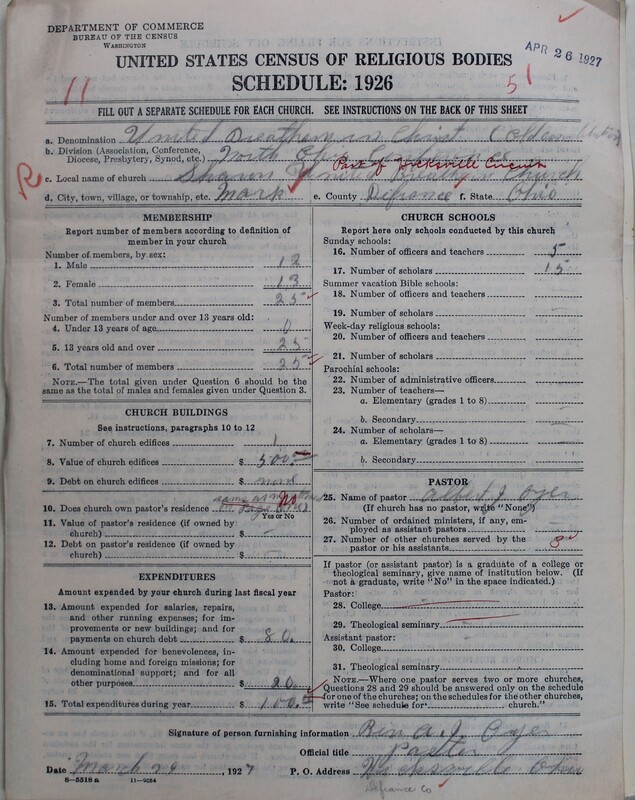 DEPARTMENT OF COMMERCE
BUREAU OF THE CENSUS
WASHINGTON
APR 26 1927
UNITED STATES CENSUS OF RELIGIOUS BODIES
SCHEDULE: 1926
11
51
FILL OUT A SEPARATE SCHEDULE FOR EACH CHURCH. SEE INSTRUCTIONS ON THE BACK OF THIS SHEET
a. Denomination United Breathern in Christ
b. Division (Association, Conference, Diocese, Presbytery, Synod, etc.) North
Part of Hicksville Circuit
c. Local name of church Sharon United Church
R
d. City, town, village, or township, etc. Mark e. County Defiance f. State Ohio
MEMBERSHIP
Report number of members according to definition of member in your church
Number of members, by sex:
1. Male 12
2. Female 13
3. Total number of members 25
Number of members under and over 13 years old:
4. Under 13 years of age 0
5. 13 years old and over 25
6. Total number of members 25
NOTE.—The total given under Question 6 should be the same as the total of males and females given under Question 3.
CHURCH BUILDINGS
See instructions, paragraphs 10 to 12
7. Number of church edifices 1
8. Value of church edifices $ 500.
9. Debt on church edifices $ none
10. Does church own pastor's residence No
Yes or No
11. Value of pastor's residence (if owned by church) $
12. Debt on pastor's residence (if owned by church) $
EXPENDITURES
Amount expended by your church during last fiscal year
13. Amount expended for salaries, repairs, and other running expenses; for improvements or new buildings; and for payments on church debt $ 80.
14. Amount expended for benevolences, including home and foreign missions; for denominational support; and for all other purposes $ 20.
15. Total expenditures during year $ 100.
CHURCH SCHOOLS
Report here only schools conducted by this church
Sunday schools:
16. Number of officers and teachers 5
17. Number of scholars 15
Summer vacation Bible schools:
18. Number of officers and teachers
19. Number of scholars
Week-day religious schools:
20. Number of officers and teachers
21. Number of scholars
Parochial schools:
22. Number of administrative officers
23. Number of teachers—
a. Elementary (grades 1 to 8)
b. Secondary
24. Number of scholars—
a. Elementary (grades 1 to 8)
b. Secondary
PASTOR
25. Name of pastor Albert J. Oyer
(If church has no pastor, write "None")
26. Number of ordained ministers, if any, employed as assistant pastors
27. Number of other churches served by the pastor or his assistants 3
If pastor (or assistant pastor) is a graduate of a college or theological seminary, give name of institution below. (If not a graduate, write "No" in the space indicated.)
Pastor:
28. College
29. Theological seminary
Assistant pastor:
30. College
31. Theological seminary
NOTE.—Where one pastor serves two or more churches, Questions 28 and 29 should be answered only on the schedule for one of the churches; on the schedules for the other churches, write "See schedule for church."
Signature of person furnishing information Rev. A. J. Oyer
Official title Pastor
Date March 29, 1927 P. O. Address Hicksville Ohio
8—5518a 11—9284
Defiance Co